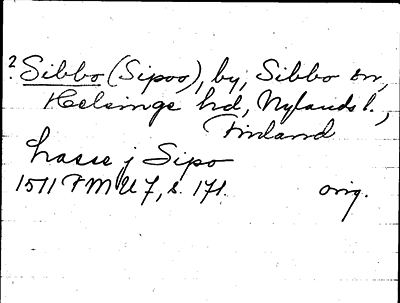 ? Sibbo (Sipoo), by, Sibbo sn,
Helsinge hd, Nylands l.,
Finland
Lasse j Sipo
1511 FMU 7, s. 171. orig.